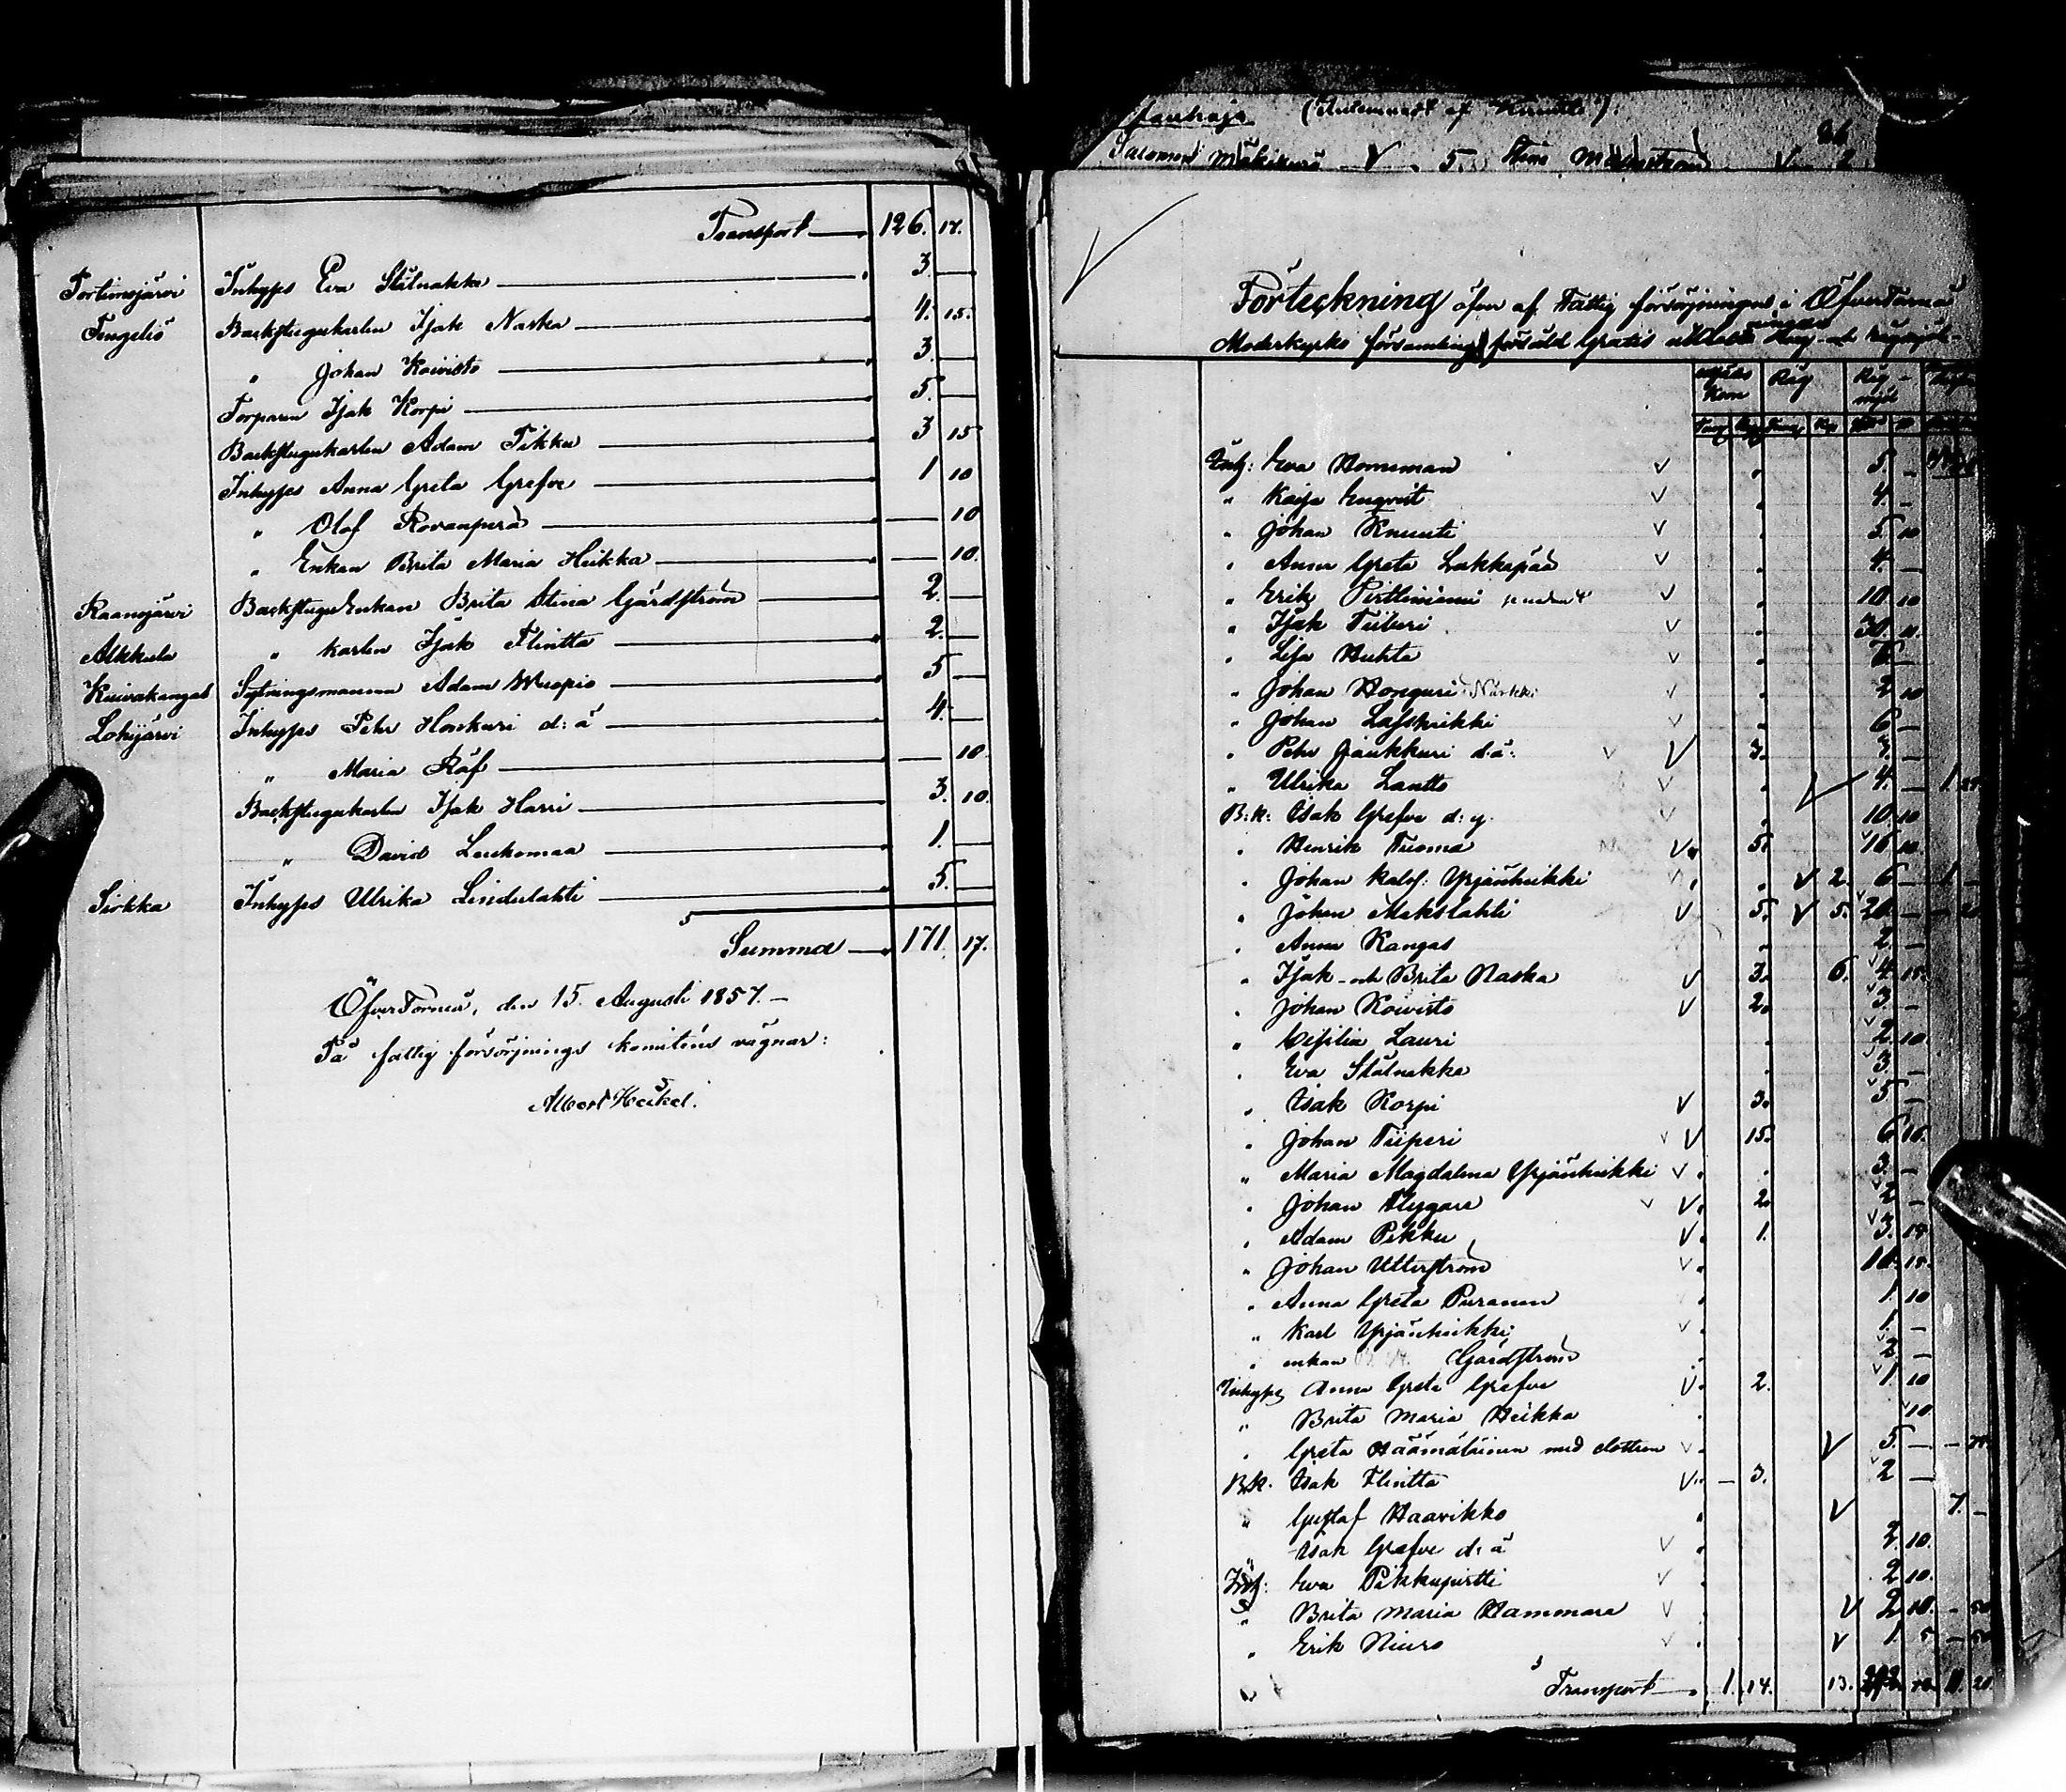 Transport 126. 17.
Portimojärvi Inhyses Eva Stålnakke 3. —
Tengeliö Backstugukarlen Isak Naska 4. 15.
" Johan Koivisto 3. —
Torparen Isak Korpi 5. —
Backstugukarlen Adam Pikku 3 15
Inhyses Anna Greta Grefve 1 10
" Olof Rovanperä — 10
" Enkan Brita Maria Heikka — 10.
Raanujärvi Backstugu Enkan Brita Stina Gårdström 2. —
Alkkula " karlen Isak Flinttа 2. —
Kuivakangas Sytningsmannen Adam Wuopio 5 —
Lohijärvi Inhyses Petr Hourkuri d: ä 4. —
" Maria Räf — 10.
Backstugukarlen Isak Harri 3. 10.
" David Leukomaa 1. —
Sirkka Inhyses Ulrika Lindelahti 5. —
Summa 171. 17.
ÖfverTorneå, den 15. Augusti 1857. —
På fattigförsörjnings komiténs vägnar:
Albert Heikel.
Salomon V. 5. Stina V 2
Förteckning öfver af Fattig försörjningen i ÖfverTorneå
Moderkyrko församling gratis
Korn Råg Råg-mjöl
Inh: Eva Horneman V 5. —
" Kaisa Enqvist V 4. —
" Johan Knuuti V 5. 10
" Anna Greta Lakkapää V 4. —
" Erik Pirttiniemi V 10 10
" Isak Tiiberi V 30.
" Lisa Huhta V 6 —
" Johan Honguri V 2 10
" Johan Lassheikki V 6 —
" Petr Jaukkuri d:ä: V V 3. 3. —
" Ulrika Lantto V V 4. — 1 25
B:k: Isak Grefve d:y. V 10 10
" Henrik Tuoma V 5. 16 10
" Johan Yrjänheikki V V 2. 6 — 1 —
" Johan Makslahti V 5. V 5. 20 —
" Anna Kangas 2. —
" Isak och Brita Naska V 3. 6. 4. 15.
" Johan Koivisto V 2. 3. —
" Cesilia Lauri 2. 10
" Eva Stålnakke 3. —
" Isak Korpi V 3. 5 —
" Johan Tiiperi V V 15. 6. 16.
" Maria Magdalena Yrjänheikki V 3. —
" Johan Flygare V V. 2. 2 —
" Adam Pikku V. 1. 3. 15
" Johan Utterström V 10. 15.
" Anna Greta Puranen 1. 10
" Karl Yrjänheikki V 1. —
" enkan Gårdström 2 —
Inhyses Anna Greta Grefve V. 2. 1. 10
" Brita Maria Heikka 10.
" Greta Häämäläinen med dottren V V 5. —
B.k. Isak Flintta V. — 3. 2 —
" Gustaf Haarikko V 7. —
" Isak Grefve d: ä V 2. 10.
Inh: Eva Pikkupirtti V 2 10.
" Brita Maria Hammara V V 2 10. — 50
" Erik Niuro V V 1. 5 — 50
Transport 1. 14. 13.